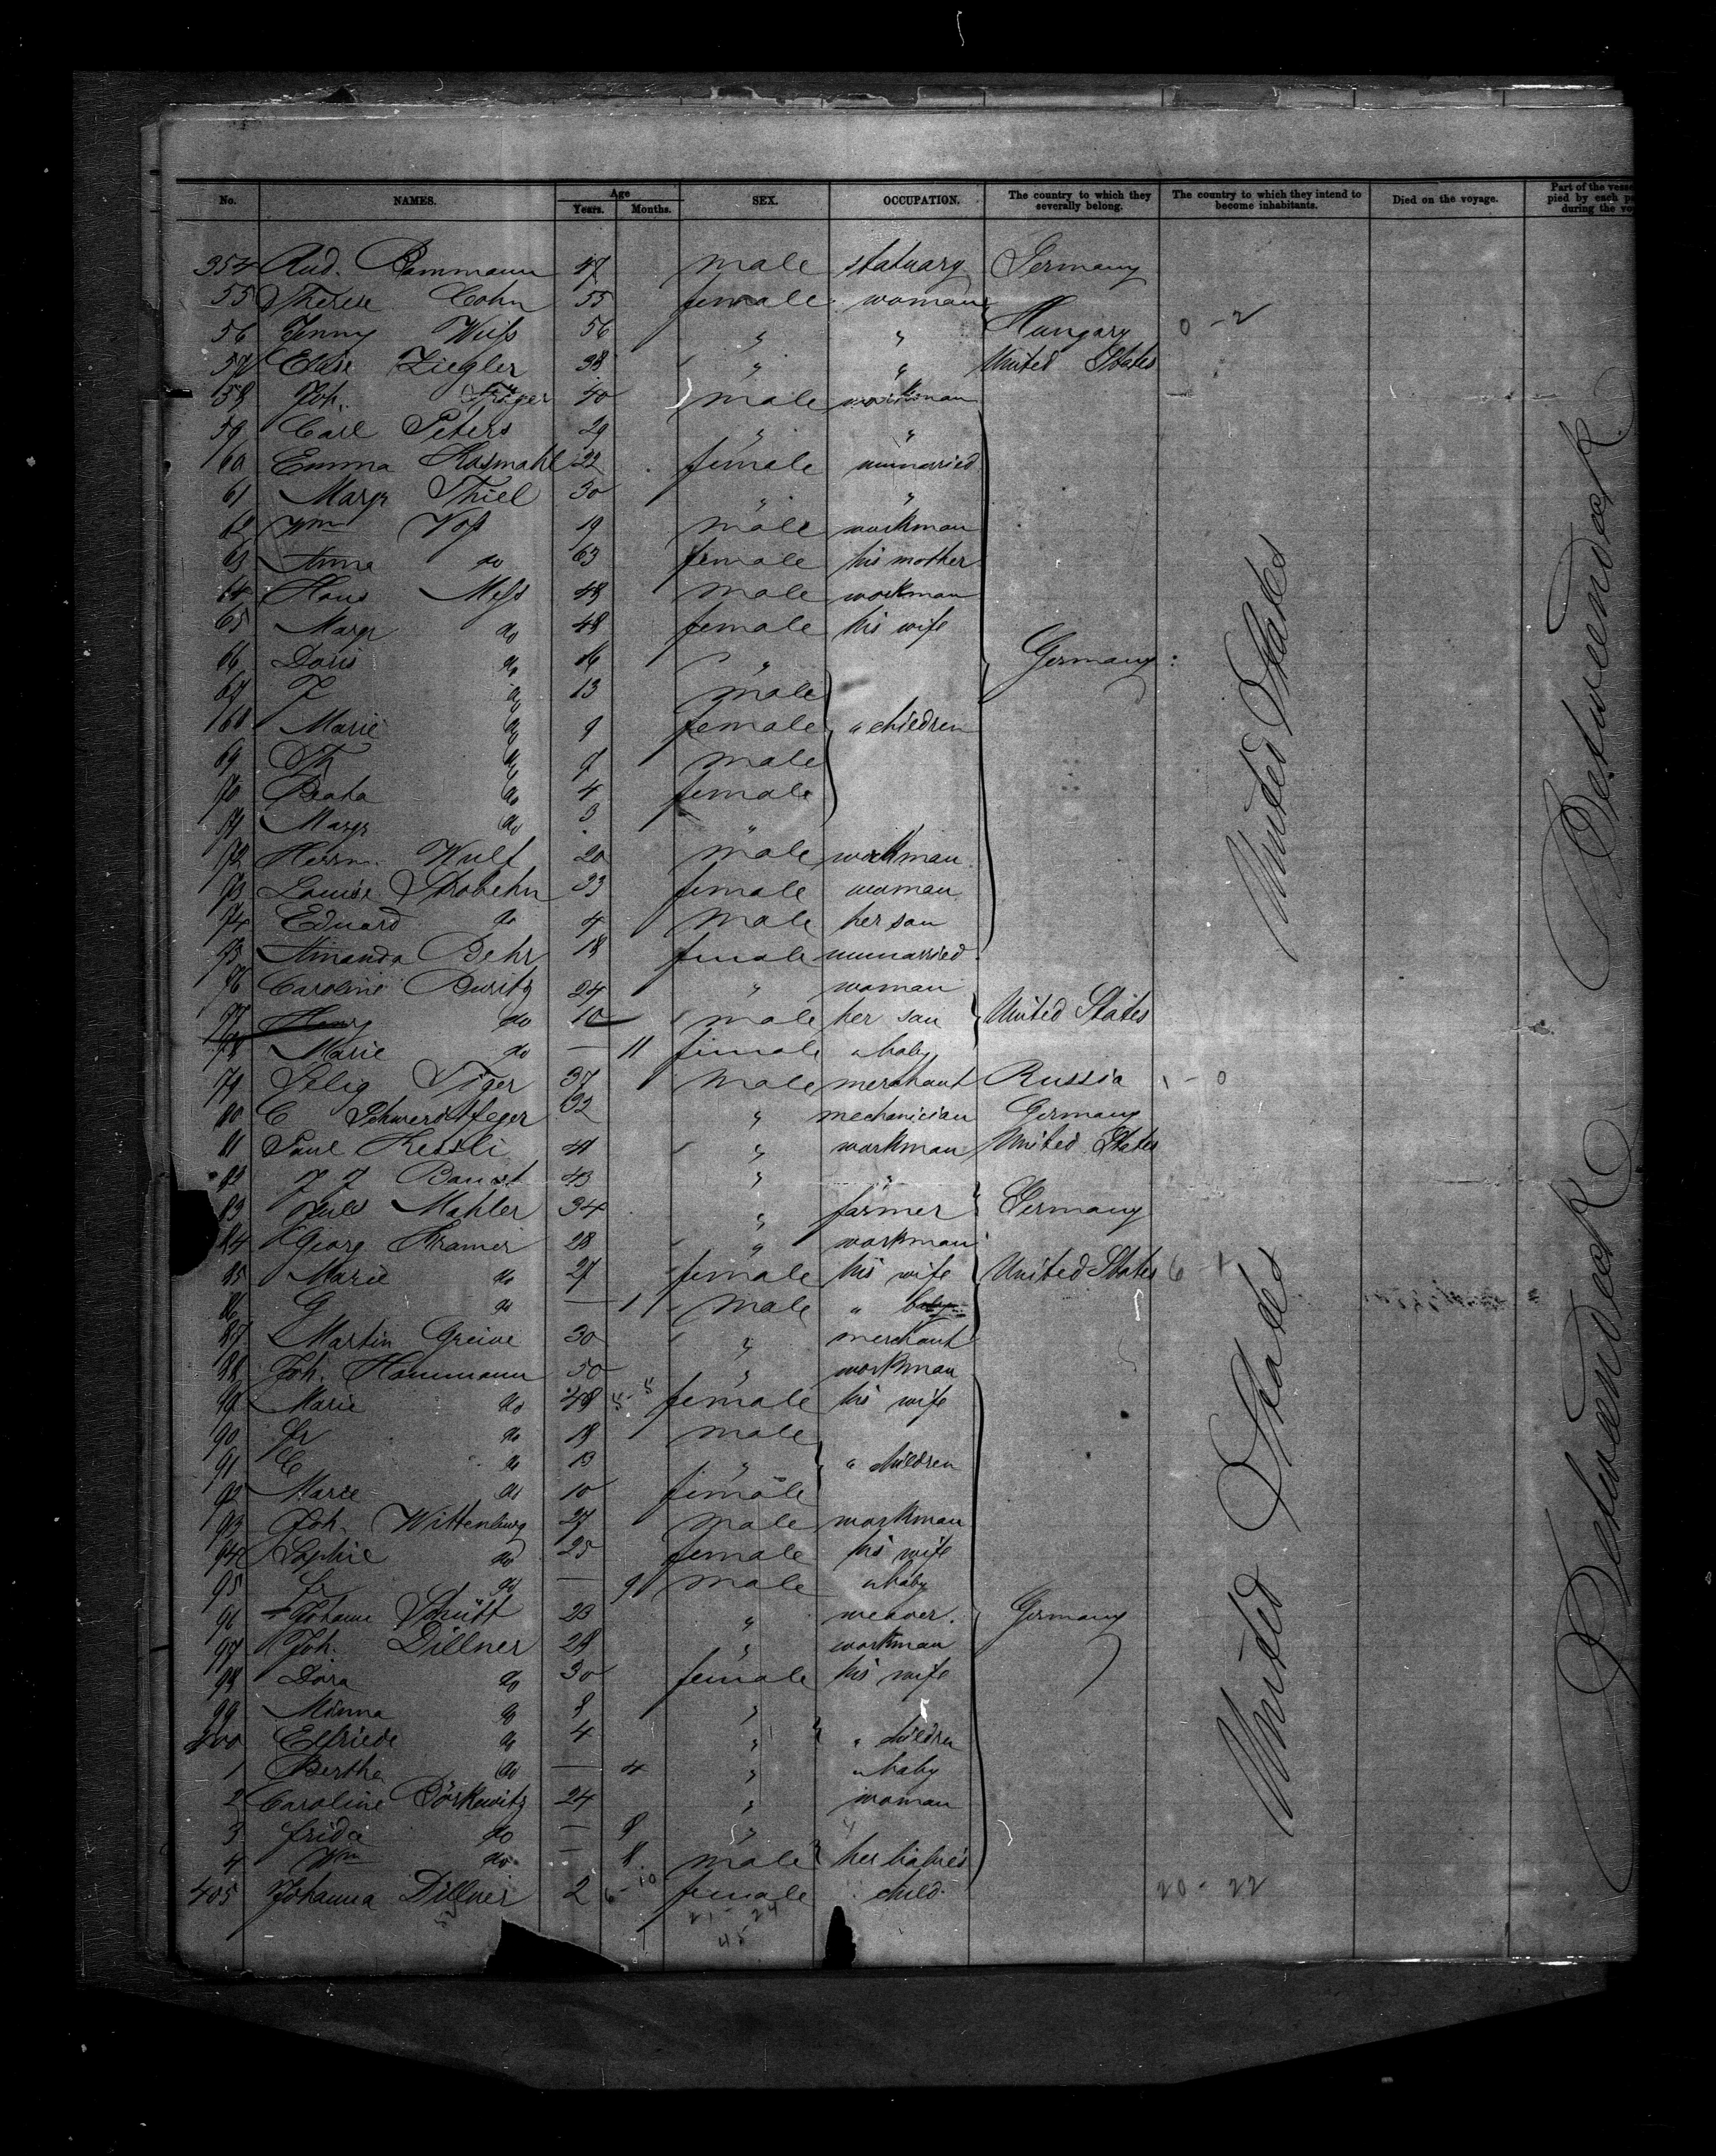 No. NAMES. Age Years. Months. SEX. OCCUPATION. The country to which they severally belong. The country to which they intend to become inhabitants. Died on the voyage. Part of the vesse pied by each p during the vo
354 Aud. Bammann 47 male statuary Germany
55 Therese Cohn 55 female woman
56 Jenny Weiss 56 " " Hungary 0 - 2
57 Elise Ziegler 38 " " United States
58 Joh. 40 male workman
59 Carl Peters 29 " "
60 Emma Kosmahl 22 female unmarried
61 Margr Thiel 30 " "
62 Wm Voss 19 male workman
63 Anna do 63 female his mother
64 Hans Mess 48 male workman
65 Margr do 48 female his wife
66 Doris do 16 " Germany
67 do 13 male
68 Marie do 9 female " children
69 Th do 7 male
70 do 4 female
71 Margr do 3 "
72 Herrm. Wulf 20 male workman
73 Louise Strobehn 33 female woman
74 Eduard do 4 male her son
75 Amanda Behr 18 female unmarried
76 Caroline 24 " woman
77 do 10 male her son United States
78 Marie do — 11 female " baby
79 Selig Tiger 37 male merchant Russia 1 - 0
80 C Schwerdtfeger 32 " mechanician Germany
81 Paul Kessli 41 " workman United States
82 43 " "
83 Mahler 34 " farmer Germany
84 Georg Kramer 28 " workman
85 Marie do 27 female his wife United States 6 - 1
86 G do — 1 male " baby
87 Martin Greive 30 " merchant
88 Joh. Hammann 50 " workman
89 Marie do 48 5 - 5 female his wife
90 Fr do 18 male
91 C do 13 " " children
92 Marie do 10 female
93 Joh. Wittenburg 27 male workman
94 Sophie do 25 female his wife
95 Fr do — 9 male " baby
96 Johann Schütt 23 " weaver. Germany
97 Joh. Dillner 28 " workman
98 Dora do 30 female his wife
99 Minna do 8 "
400 Elfriede do 4 " " children
1 Bertha do — 4 " " baby
2 Caroline Börkewitz 24 " woman
3 Frida do — 8 "
4 Wm do — 8 male her babies
405 Johanna Dillner 2 6 - 10 female child. 20 - 22
21 - 24
45
United States
United States
Betweendeck
Betweendeck